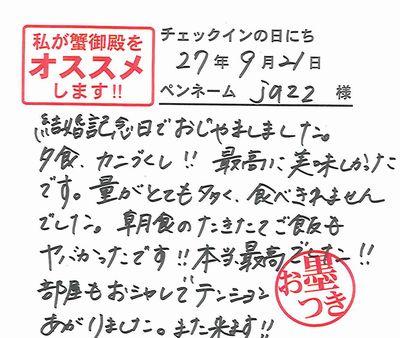 私が蟹御殿を
オススメ
します!!
チェックインの日にち
27年9月21日
ペンネーム jazz 様
結婚記念日でおじゃましました。
夕食、カニづくし!! 最高に美味しかった
です。量がとても多く、食べきれません
でした。朝食のたきたてご飯も
ヤバかったです!!本当最高でした!!
部屋もおシャレでテンション
あがりました。また来ます!!
お墨つき